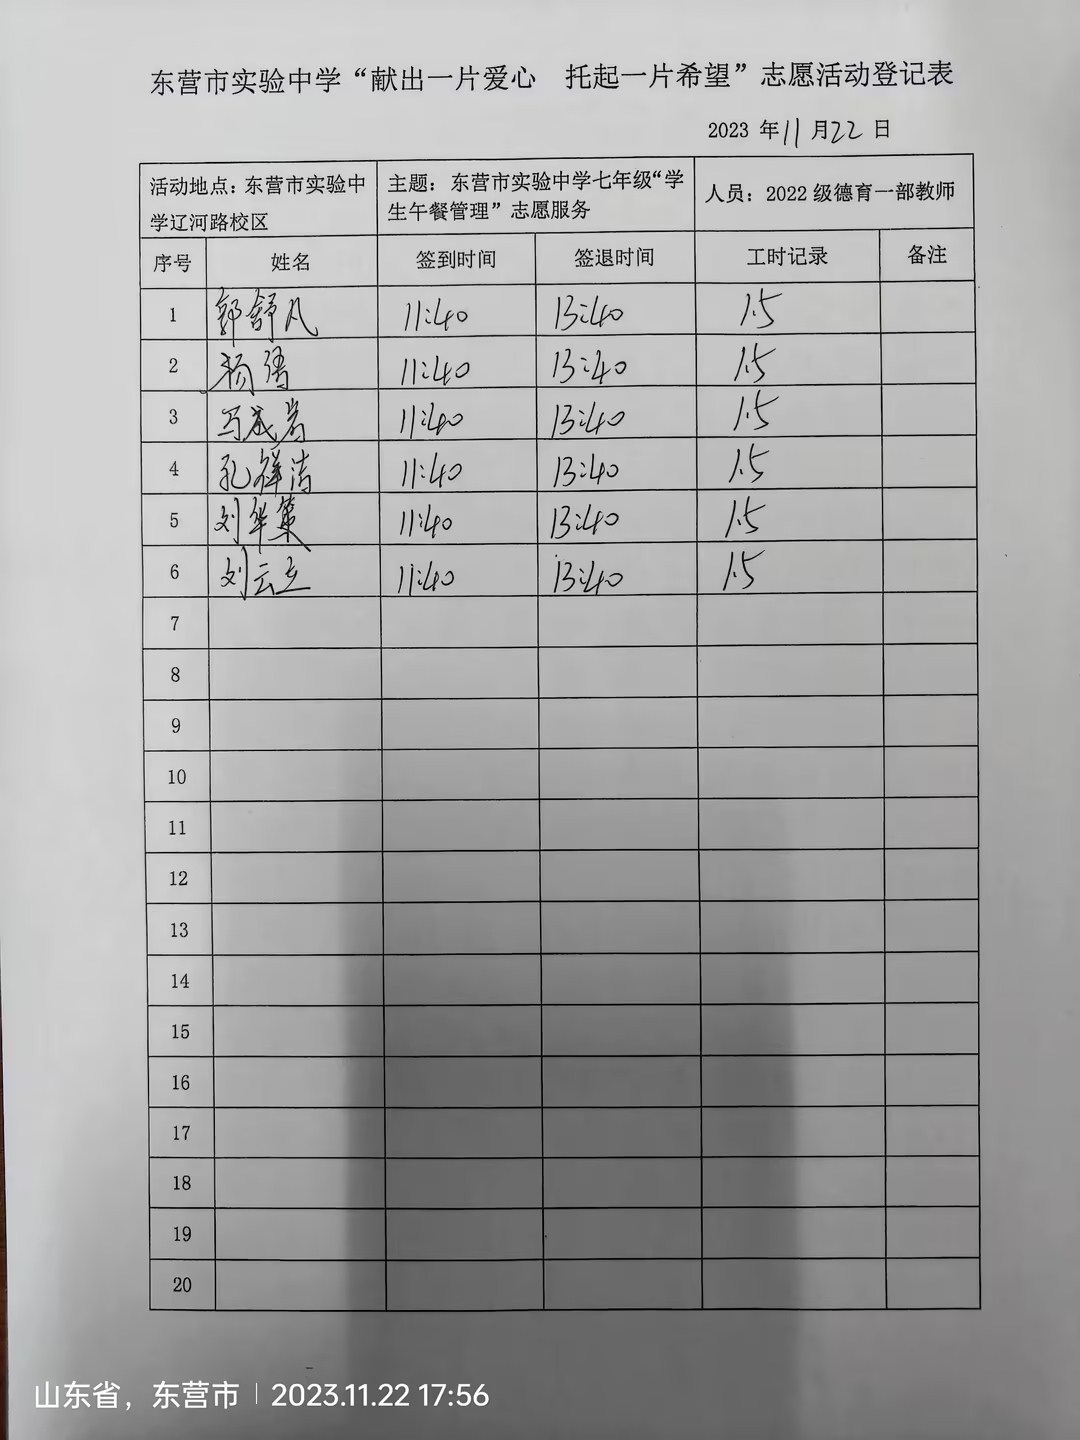 东营市实验中学“献出一片爱心 托起一片希望”志愿活动登记表
2023 年 11 月 22 日
活动地点：东营市实验中学辽河路校区 主题：东营市实验中学七年级“学生午餐管理”志愿服务 人员：2022 级德育一部教师
序号 姓名 签到时间 签退时间 工时记录 备注
1 郭舒凡 11:40 13:40 1.5
2 杨 11:40 13:40 1.5
3 11:40 13:40 1.5
4 孔祥洁 11:40 13:40 1.5
5 刘华 11:40 13:40 1.5
6 刘云立 11:40 13:40 1.5
7
8
9
10
11
12
13
14
15
16
17
18
19
20
山东省，东营市 2023.11.22 17:56